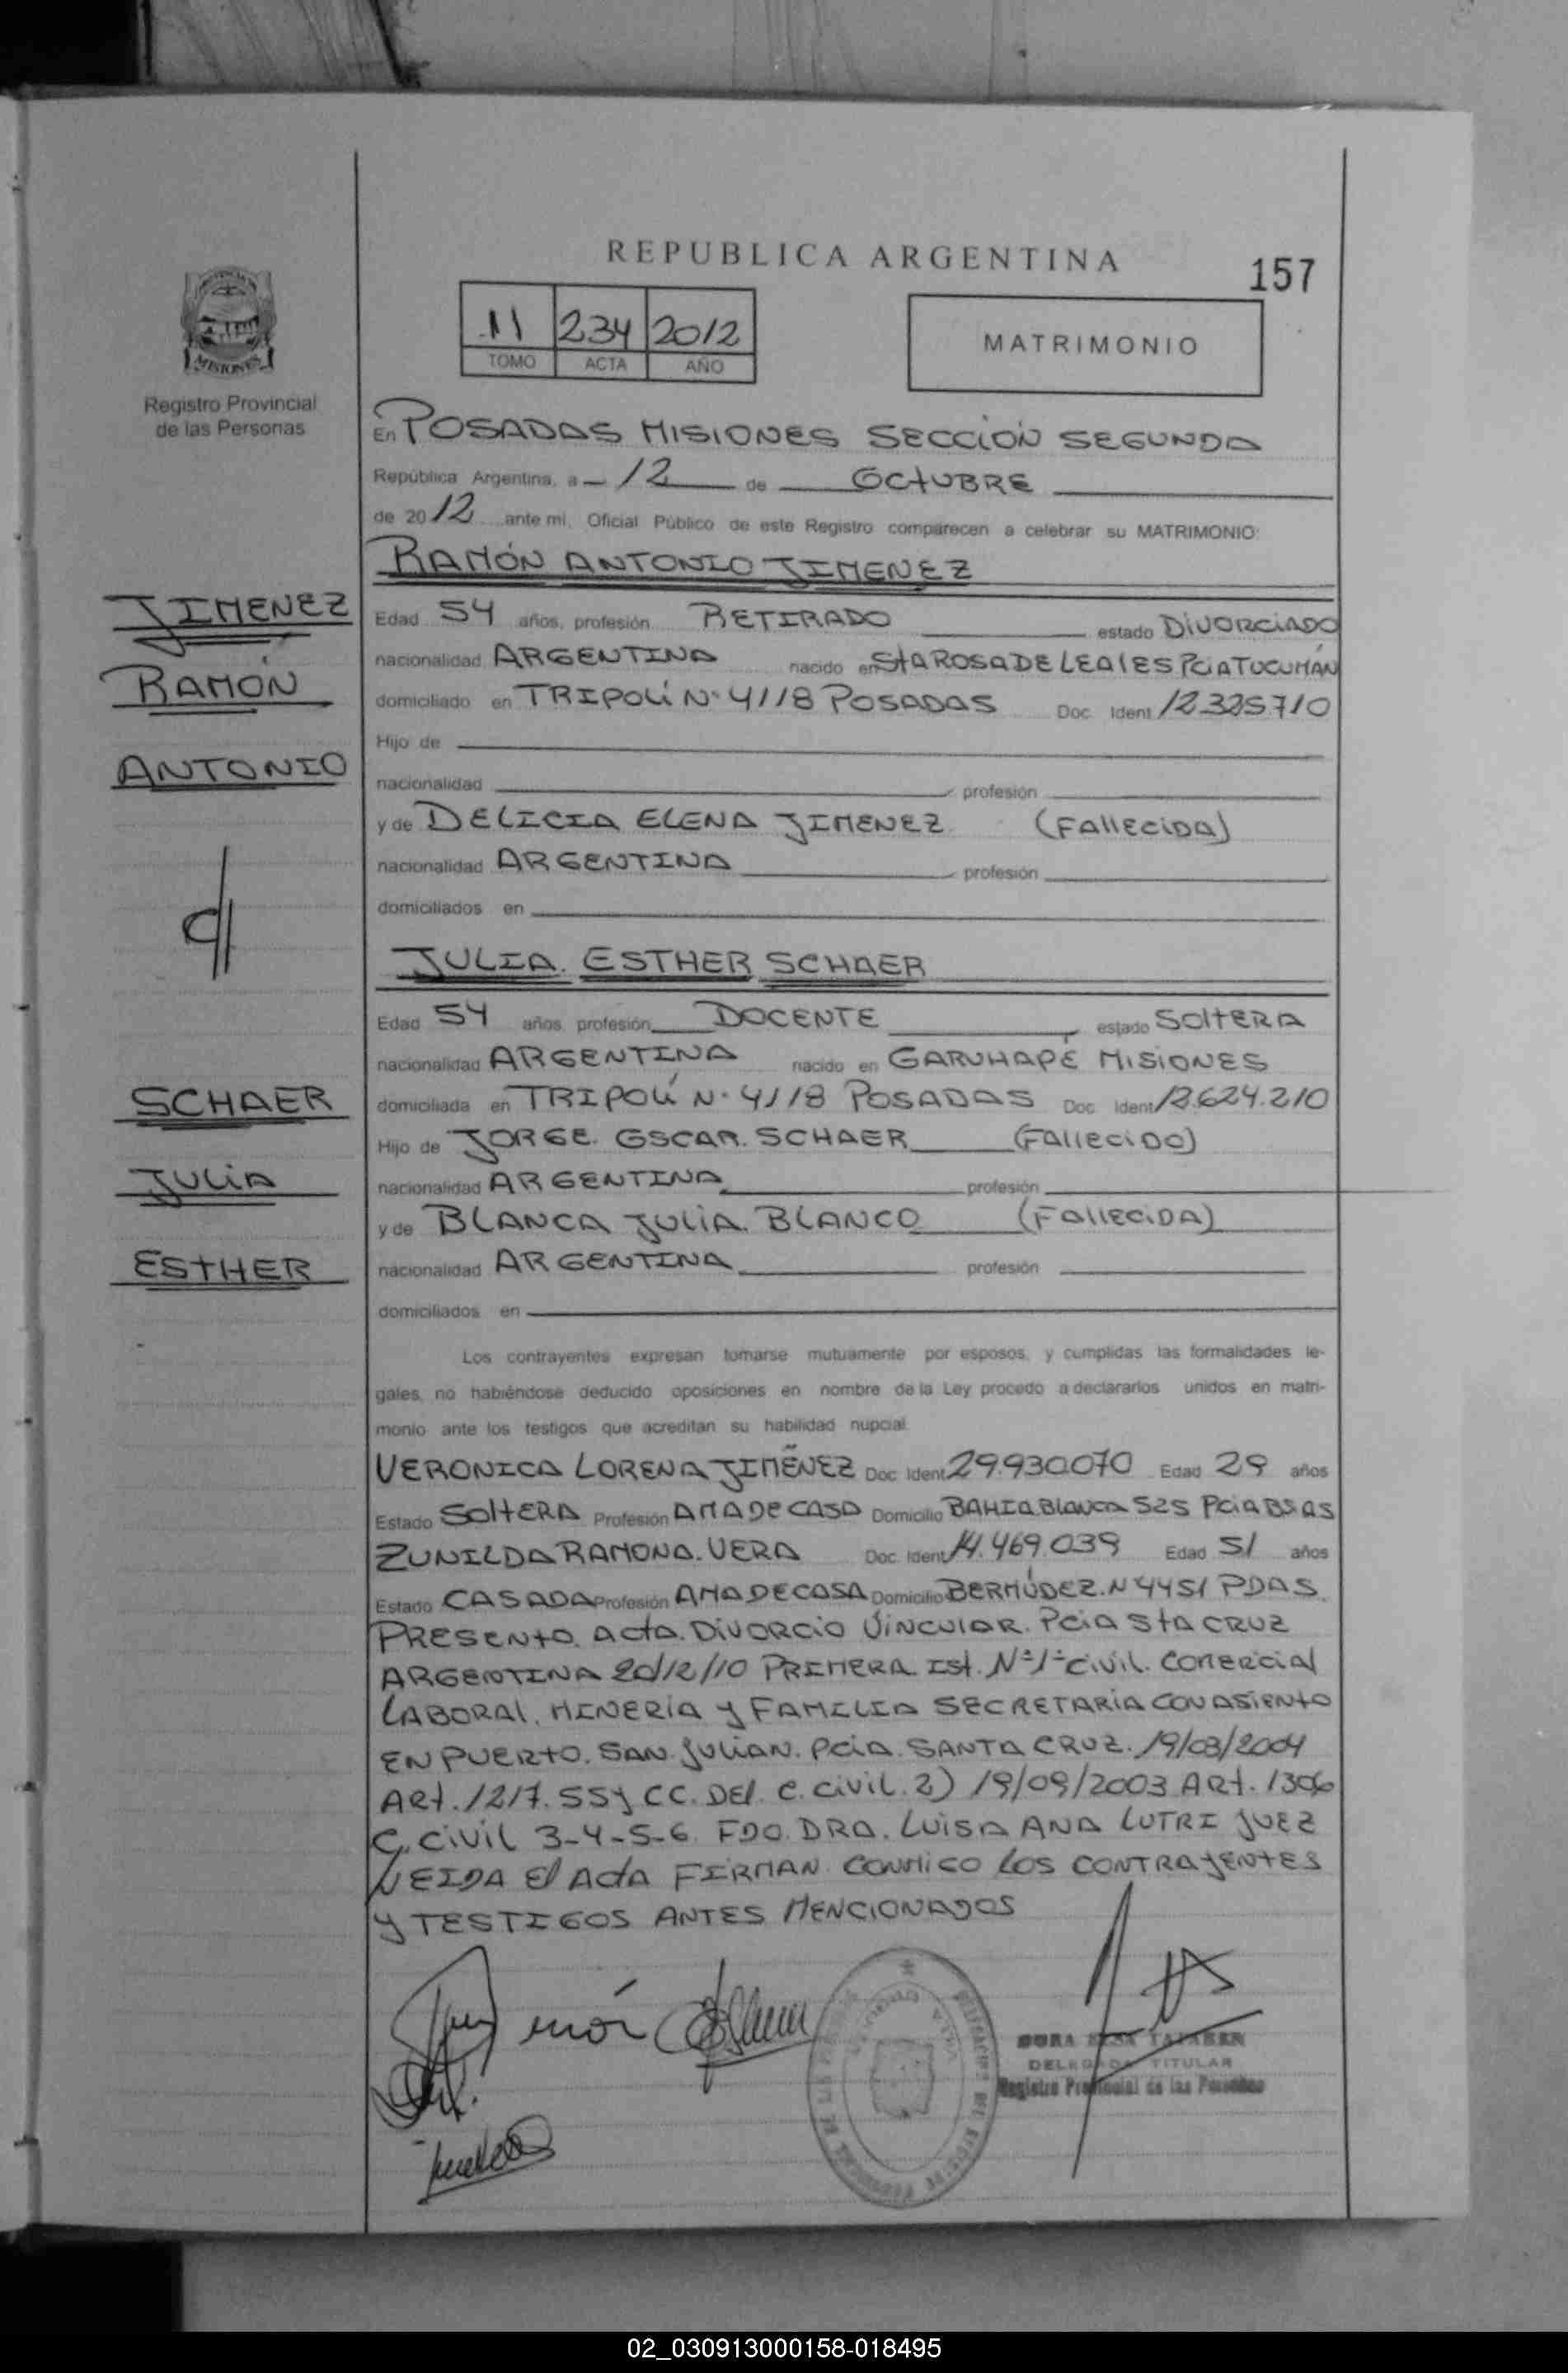 REPUBLICA ARGENTINA
157
11 234 2012
TOMO ACTA AÑO
MATRIMONIO
MISIONES
Registro Provincial
de las Personas
En POSADAS MISIONES SECCIÓN SEGUNDA
República Argentina, a 12 de OCTUBRE
de 2012 ante mi, Oficial Público de este Registro comparecen a celebrar su MATRIMONIO:
RAMÓN ANTONIO JIMENEZ
JIMENEZ
RAMÓN
ANTONIO
Edad 54 años, profesión RETIRADO estado DIVORCIADO
nacionalidad ARGENTINA nacido en STA ROSA DE LEALES PCIA TUCUMÁN
domiciliado en TRIPOLÍ N· 4118 POSADAS Doc. Ident 12325710
Hijo de
nacionalidad profesión
y de DELICIA ELENA JIMENEZ (FALLECIDA)
nacionalidad ARGENTINA profesión
domiciliados en
c//
JULIA. ESTHER SCHAER
Edad 54 años profesión DOCENTE estado SOLTERA
nacionalidad ARGENTINA nacido en GARUHAPÉ MISIONES
domiciliada en TRIPOLÍ N· 4118 POSADAS Doc. Ident 12.624.210
SCHAER
JULIA
ESTHER
Hijo de JORGE. OSCAR. SCHAER (FALLECIDO)
nacionalidad ARGENTINA profesión
y de BLANCA JULIA. BLANCO (FALLECIDA)
nacionalidad ARGENTINA profesión
domiciliados en
Los contrayentes expresan tomarse mutuamente por esposos, y cumplidas las formalidades le-
gales, no habiéndose deducido oposiciones en nombre de la Ley procedo a declararlos unidos en matri-
monio ante los testigos que acreditan su habilidad nupcial
VERONICA LORENA JIMÉNEZ Doc. Ident 29.930.070 Edad 29 años
Estado SOLTERA Profesión AMA DE CASA Domicilio BAHIA BLANCA 525 PCIA BS AS
ZUNILDA RAMONA. VERA Doc. Ident 14.469.039 Edad 51 años
Estado CASADA Profesión AMA DE CASA Domicilio BERMÚDEZ. N 4451 PDAS.
PRESENTO. ACTA. DIVORCIO VINCULAR. PCIA STA CRUZ
ARGENTINA 20/12/10 PRIMERA IST. Nº 1º CIVIL. COMERCIAL
LABORAL. MINERÍA Y FAMILIA SECRETARÍA CON ASIENTO
EN PUERTO. SAN. JULIAN. PCIA. SANTA CRUZ. 19/03/2004
ART. 1217. SS Y CC. DEL. C. CIVIL. 2) 19/09/2003 ART. 1306
C. CIVIL 3-4-5-6. FDO. DRA. LUISA ANA LUTRI JUEZ
LEIDA EL ACTA FIRMAN. CONMIGO LOS CONTRAYENTES
Y TESTIGOS ANTES MENCIONADOS
DELEGADA TITULAR
Registro Provincial de las Personas
02_030913000158-018495